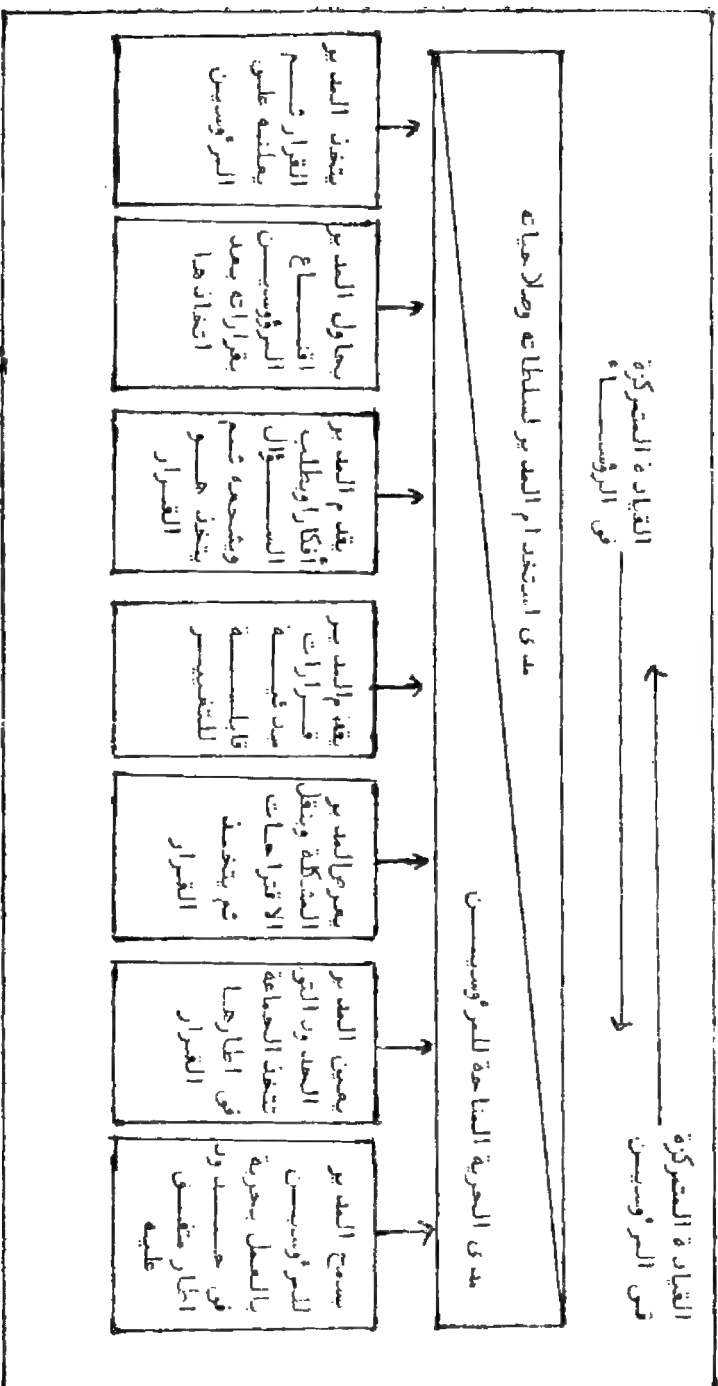 القيادة المتمركزة
فى الرؤســـاء
القيادة المتمركزة
فى المرؤوسيــن
مدى استخدام المدير لسلطاته وصلاحياته
مدى الحرية المتاحة للمرؤوسيــــن
يتخذ المدير
القرار ثــم
يعلنه على
المرؤوسين
يحاول المدير
اقنــــاع
المرؤوسيــن
بقراراته بعد
اتخاذها
يقدم المدير
أفكارا ويطلب
الســـؤال
ويشجعه ثــم
يتخذ هـــو
القـرار
يقدم المديـر
قــرارات
مبدئيـــة
قابلــــة
للتغييــر
يعرض المدير
المشكلة وينقل
الاقتراحات
ثم يتخـــذ
القرار
يعين المدير
الحدود التى
تتخذ الجماعة
فى اطارهــا
القـرار
يسمح المدير
للمرؤوسيــن
بالعمل بحرية
فى حـــدود
اطار متفــق
عليه